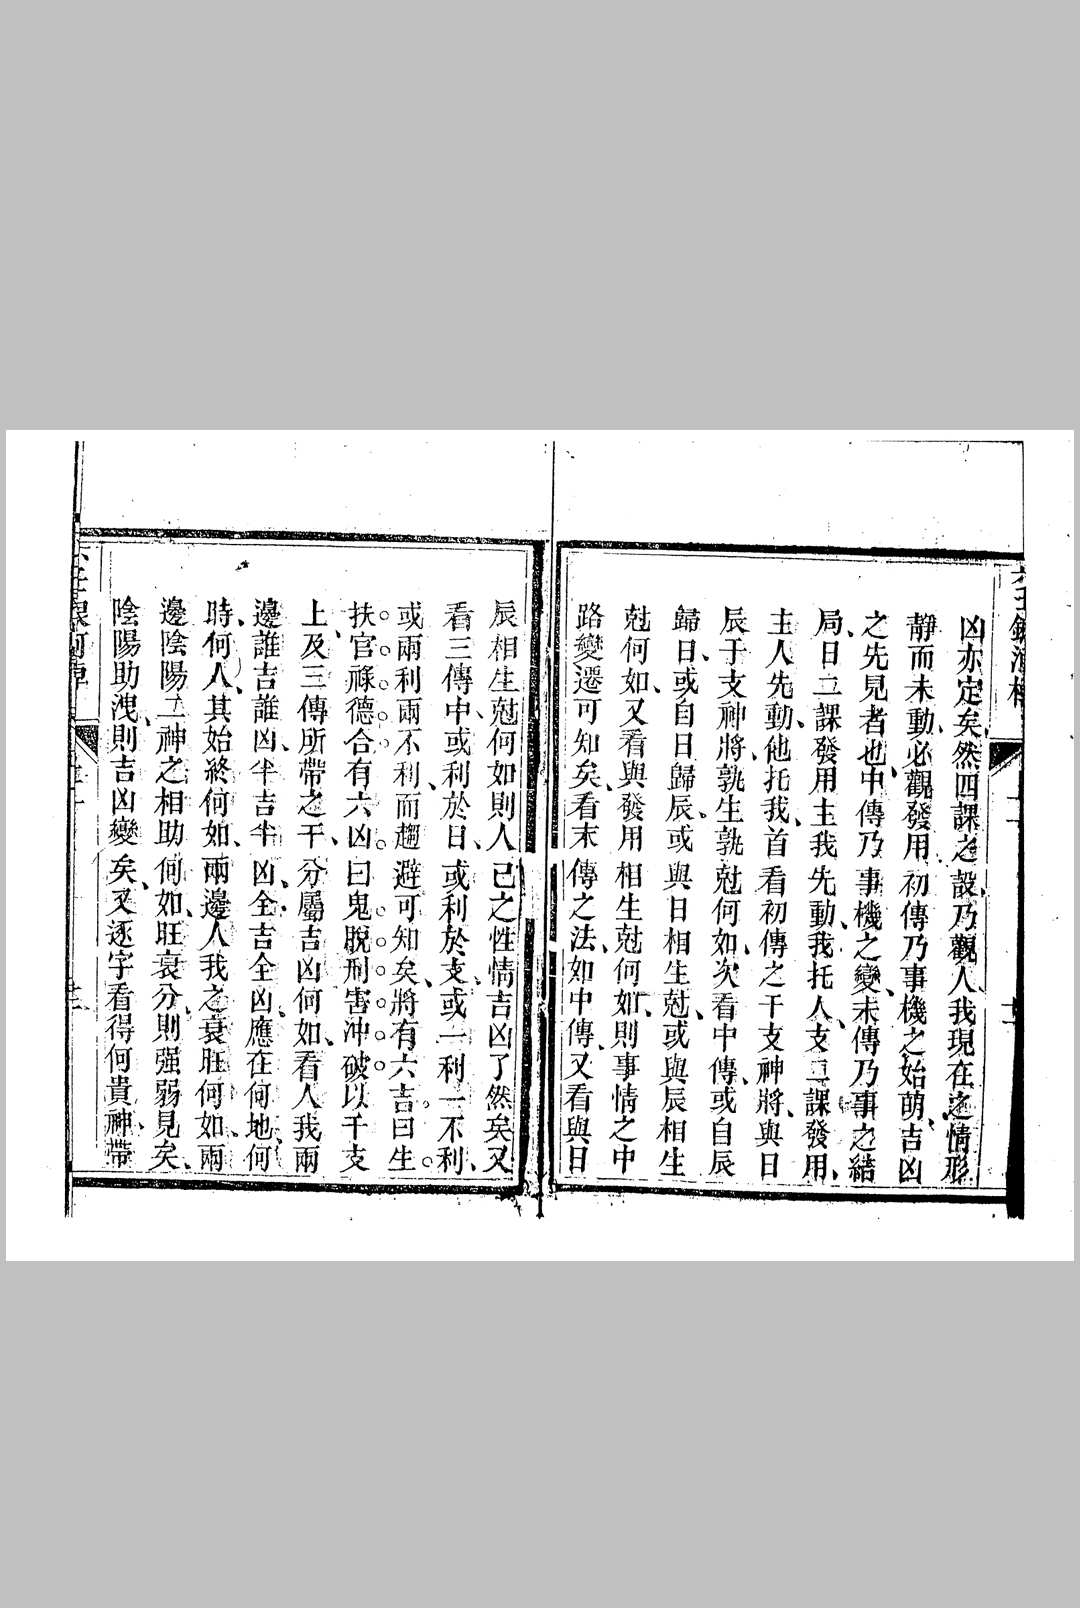 凶亦定矣、然四課之設、乃觀人我現在之情形、
靜而未動、必觀發用、初傳乃事機之始萌、吉凶
之先見者也、中傳乃事機之變、末傳乃事之結
局、日二課發用、主我先動、我托人、支二課發用、
主人先動、他托我、首看初傳之干支神將、與日
辰于支神將、孰生孰尅何如、次看中傳、或自辰
歸日、或自日歸辰、或與日相生尅、或與辰相生
尅何如、又看與發用相生尅何如、則事情之中
路變遷可知矣、看末傳之法、如中傳、又看與日
辰相生尅何如、則人己之性情吉凶了然矣、又
看三傳中、或利於日、或利於支、或一利一不利、
或兩利兩不利、而趨避可知矣、將有六吉、曰生
扶官祿德合、有六凶、曰鬼脫刑害冲破、以干支
上、及三傳所帶之干、分屬吉凶何如、看人我兩
邊誰吉誰凶、半吉半凶、全吉全凶、應在何地、何
時、何人、其始終何如、兩邊人我之衰旺何如、兩
邊陰陽二神之相助何如、旺衰分、則强弱見矣、
陰陽助洩、則吉凶變矣、又逐字看得何貴神、帶